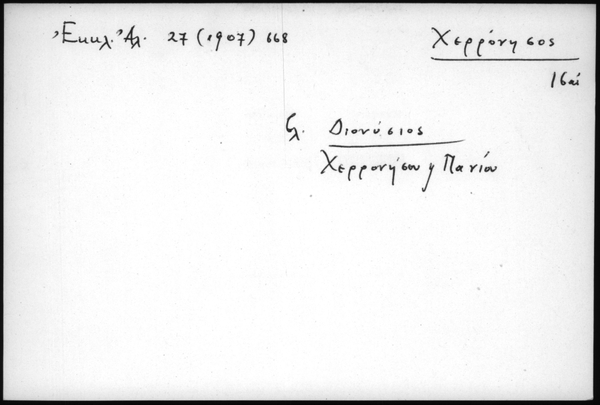 Ἐκκλ. Ἀλ. 27 (1907) 668
Χερρόνησος
16αί
βλ. Διονύσιος
Χερρονήσου ἢ Πανίου